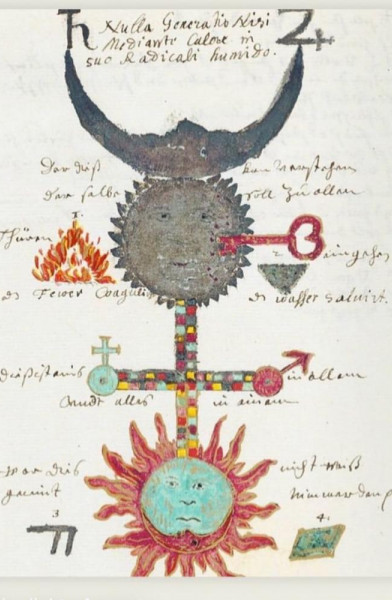 ♄ Nulla Generatio Nisi ♃
Mediante Calore in
suo Radicali humido.
Der diß kan verstehen
der selbe soll zu allen
Thüren 1. 2. eingehen
das Feuer Coagulirt das Wasser Solvirt.
in allem
undt alles in einem
wer dis nicht weiß
3 4.